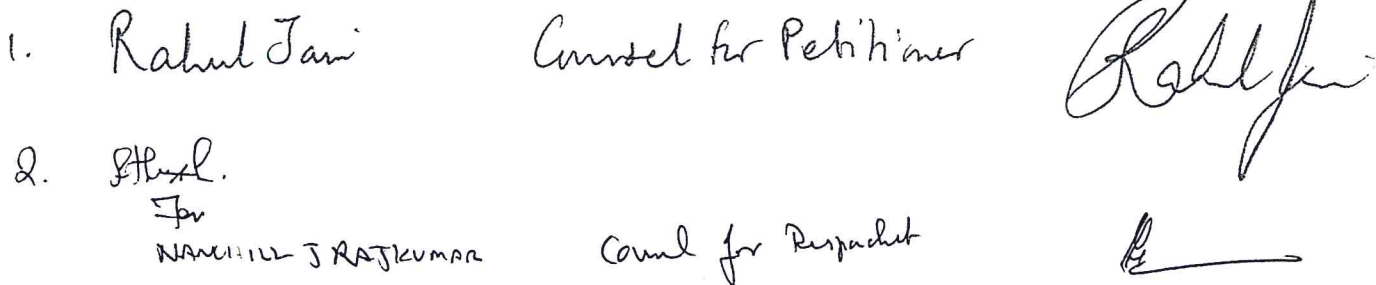 1. Rahul Jain Counsel for Petitioner Rahul Jain
2.
For
J RAJKUMAR Counsel for Respondent